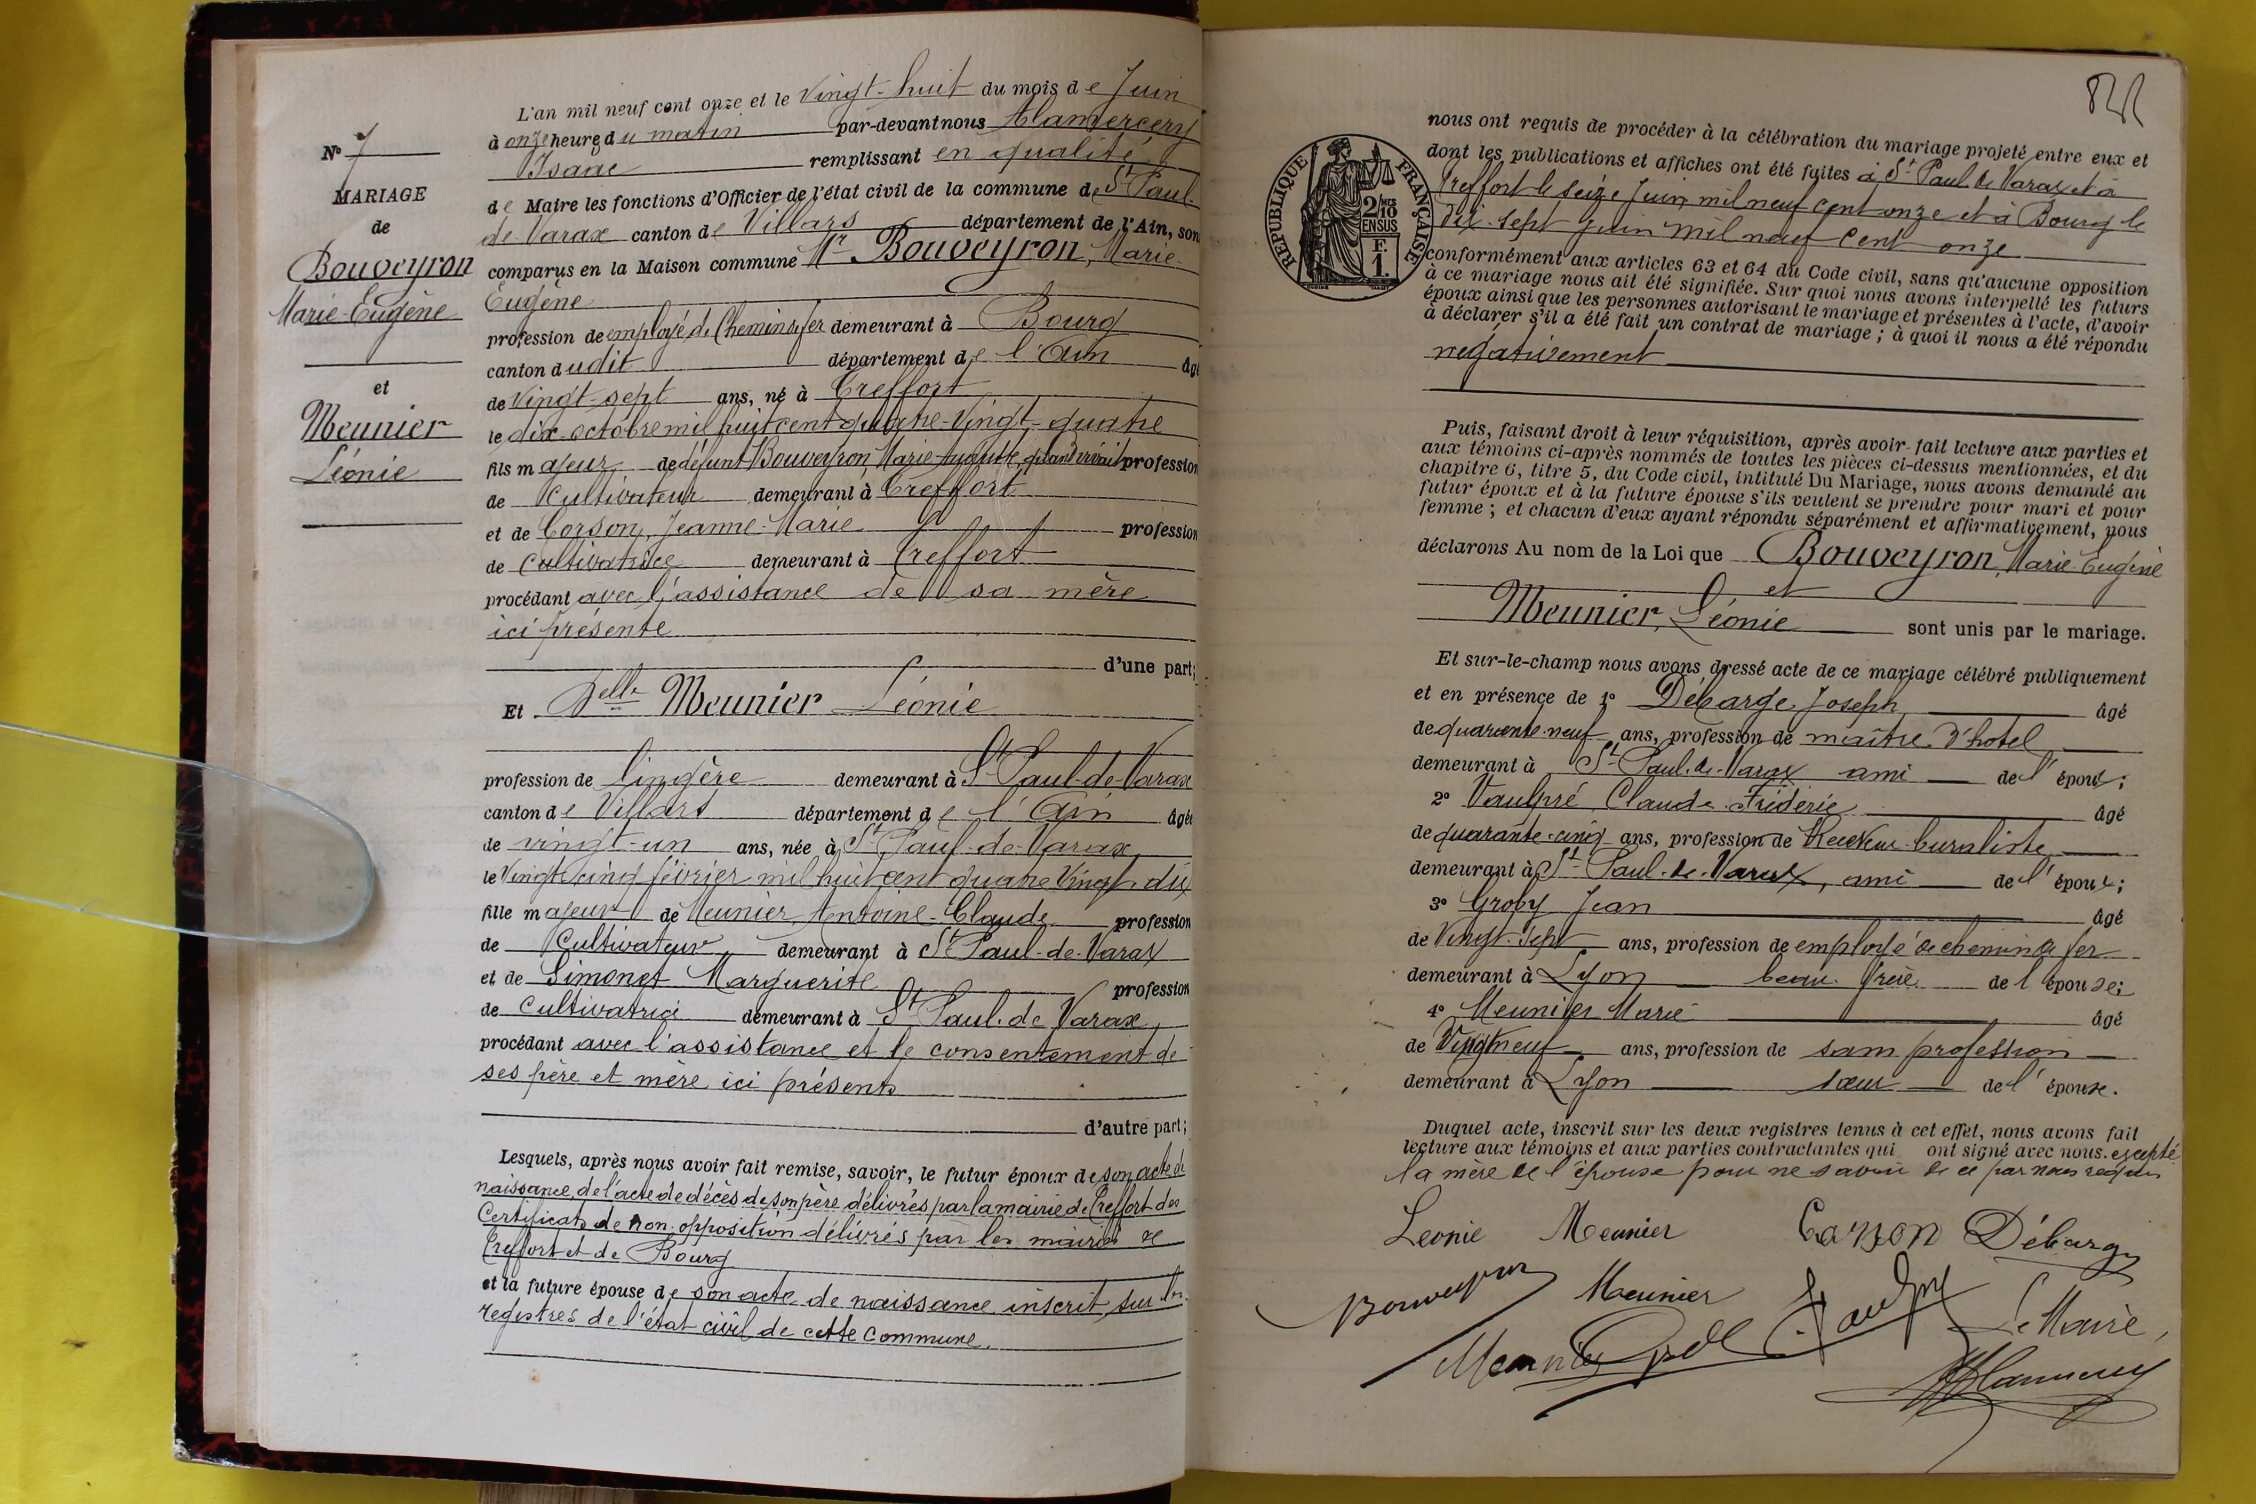 N° 7
MARIAGE
de
Bouveyron
Marie-Eugène
et
Meunier
Léonie
L'an mil neuf cent onze et le Vingt-huit du mois de Juin
à onze heure du matin par-devant nous Alamercery
Isaac remplissant en qualité
de Maire les fonctions d'Officier de l'état civil de la commune de St Paul-
de Varax canton de Villars département de l'Ain, son
comparus en la Maison commune Mr Bouveyron, Marie-
Eugène
profession de employé de Chemins de fer demeurant à Bourg
canton dudit département de l'Ain âgé
de Vingt-sept ans, né à Treffort
le dix octobre mil huit cent quatre-vingt-quatre
fils majeur de défunt Bouveyron, Marie Auguste, quand vivait profession
de Cultivateur demeurant à Treffort
et de Corson, Jeanne-Marie profession
de Cultivatrice demeurant à Treffort
procédant avec l'assistance de sa mère
ici présente
d'une part;
Et Delle Meunier Léonie
profession de lingère demeurant à St Paul-de-Varax
canton de Villars département de l'Ain âgée
de vingt-un ans, née à St Paul-de-Varax
le Vingt cinq février mil huit cent quatre vingt dix
fille majeure de Meunier Antoine-Claude profession
de Cultivateur demeurant à St Paul-de-Varax
et de Simonet Marguerite profession
de Cultivatrice demeurant à St Paul-de-Varax,
procédant avec l'assistance et le consentement de
ses père et mère ici présents
d'autre part;
Lesquels, après nous avoir fait remise, savoir, le futur époux de son acte de
naissance, de l'acte de décès de son père délivrés par la mairie de Treffort des
Certificats de non opposition délivrés par les mairies de
Treffort et de Bourg
et la future épouse de son acte de naissance inscrit sur les
registres de l'état civil de cette commune.
RÉPUBLIQUE FRANÇAISE
2/10
EN SUS
F.
1.
nous ont requis de procéder à la célébration du mariage projeté entre eux et
dont les publications et affiches ont été faites à St Paul de Varax et à
Treffort le seize Juin mil neuf cent onze et à Bourg le
dix-sept juin mil neuf cent onze
conformément aux articles 63 et 64 du Code civil, sans qu'aucune opposition
à ce mariage nous ait été signifiée. Sur quoi nous avons interpellé les futurs
époux ainsi que les personnes autorisant le mariage et présentes à l'acte, d'avoir
à déclarer s'il a été fait un contrat de mariage; à quoi il nous a été répondu
négativement
Puis, faisant droit à leur réquisition, après avoir fait lecture aux parties et
aux témoins ci-après nommés de toutes les pièces ci-dessus mentionnées, et du
chapitre 6, titre 5, du Code civil, intitulé Du Mariage, nous avons demandé au
futur époux et à la future épouse s'ils veulent se prendre pour mari et pour
femme; et chacun d'eux ayant répondu séparément et affirmativement, nous
déclarons Au nom de la Loi que Bouveyron, Marie-Eugène
et
Meunier, Léonie sont unis par le mariage.
Et sur-le-champ nous avons dressé acte de ce mariage célébré publiquement
et en présence de 1° Débarge, Joseph âgé
de quarante-neuf ans, profession de maître d'hotel
demeurant à St Paul-de-Varax ami de l'époux;
2° Vaulpré Claude Fréderic âgé
de quarante-cinq ans, profession de Receveur buraliste
demeurant à St Paul-de-Varax, ami de l'époux;
3° Groby Jean âgé
de Vingt-sept ans, profession de employé de chemin de fer
demeurant à Lyon beau-frère de l'épouse;
4° Meunier Marie âgé
de Vingt neuf ans, profession de sans profession
demeurant à Lyon sœur de l'épouse.
Duquel acte, inscrit sur les deux registres tenus à cet effet, nous avons fait
lecture aux témoins et aux parties contractantes qui ont signé avec nous. excepté
la mère de l'épouse pour ne savoir de ce par nous requis
Leonie Meunier Carson Débarge
Bouveyron Meunier Vaulpré
Meunier Le Maire,
Alamercery